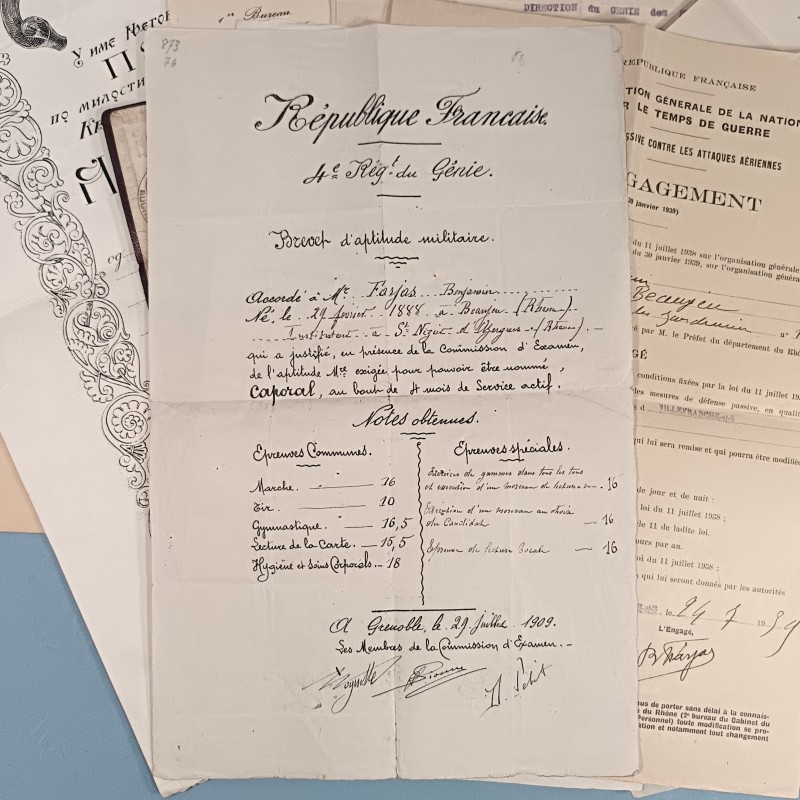 873
76
République Francaise.
4e Régt du Génie.
Brevet d'aptitude militaire.
Accordé à Mr. Farjas Benjamin
Né, le 21 février 1888 à Beaujeu (Rhône)
Instituteur à St Nizier d'Azergues (Rhône).
qui a justifié, en présence de la Commission d'Examen,
de l'aptitude Mre exigée pour pouvoir être nommé,
Caporal, au bout de 4 mois de Service actif.
Notes obtenues.
Epreuves Communes.
Marche. 16
Tir. 10
Gymnastique. 16,5
Lecture de la Carte. 15,5
Hygiène et Soins Corporels. 18
Epreuves spéciales.
Exercices de gammes dans tous les tons
et exécution d'un morceau de lecture à vue. 16
Exécution d'un morceau au choix
du Candidat 16
Epreuve de lecture vocale 16
A Grenoble, le 29 juillet 1909.
Les Membres de la Commission d'Examen.
Petit
1er Bureau.
DIRECTION du GENIE des
У име Његов
по милости
RÉPUBLIQUE FRANÇAISE
TION GÉNÉRALE DE LA NATION
R LE TEMPS DE GUERRE
SSIVE CONTRE LES ATTAQUES AÉRIENNES
GAGEMENT
janvier 1939)
du 11 juillet 1938 sur l'organisation générale
du 30 janvier 1939, sur l'organisation
Beaujeu
n°
cé par M. le Préfet du département du Rhô
GÉ
conditions fixées par la loi du 11 juillet 193
les mesures de défense passive, en qualit
d VILLEFRANCHE
qui lui sera remise et qui pourra être modifiée
de jour et de nuit :
loi du 11 juillet 1938 ;
le 11 de ladite loi.
ours par an.
oi du 11 juillet 1938 ;
qui lui seront donnés par les autorités
, le 24 7 1939
L'Engagé,
B Farjas
nus de porter sans délai à la connais-
du Rhône (2e bureau du Cabinet du
Personnel) toute modification se pro-
ation et notamment tout changement